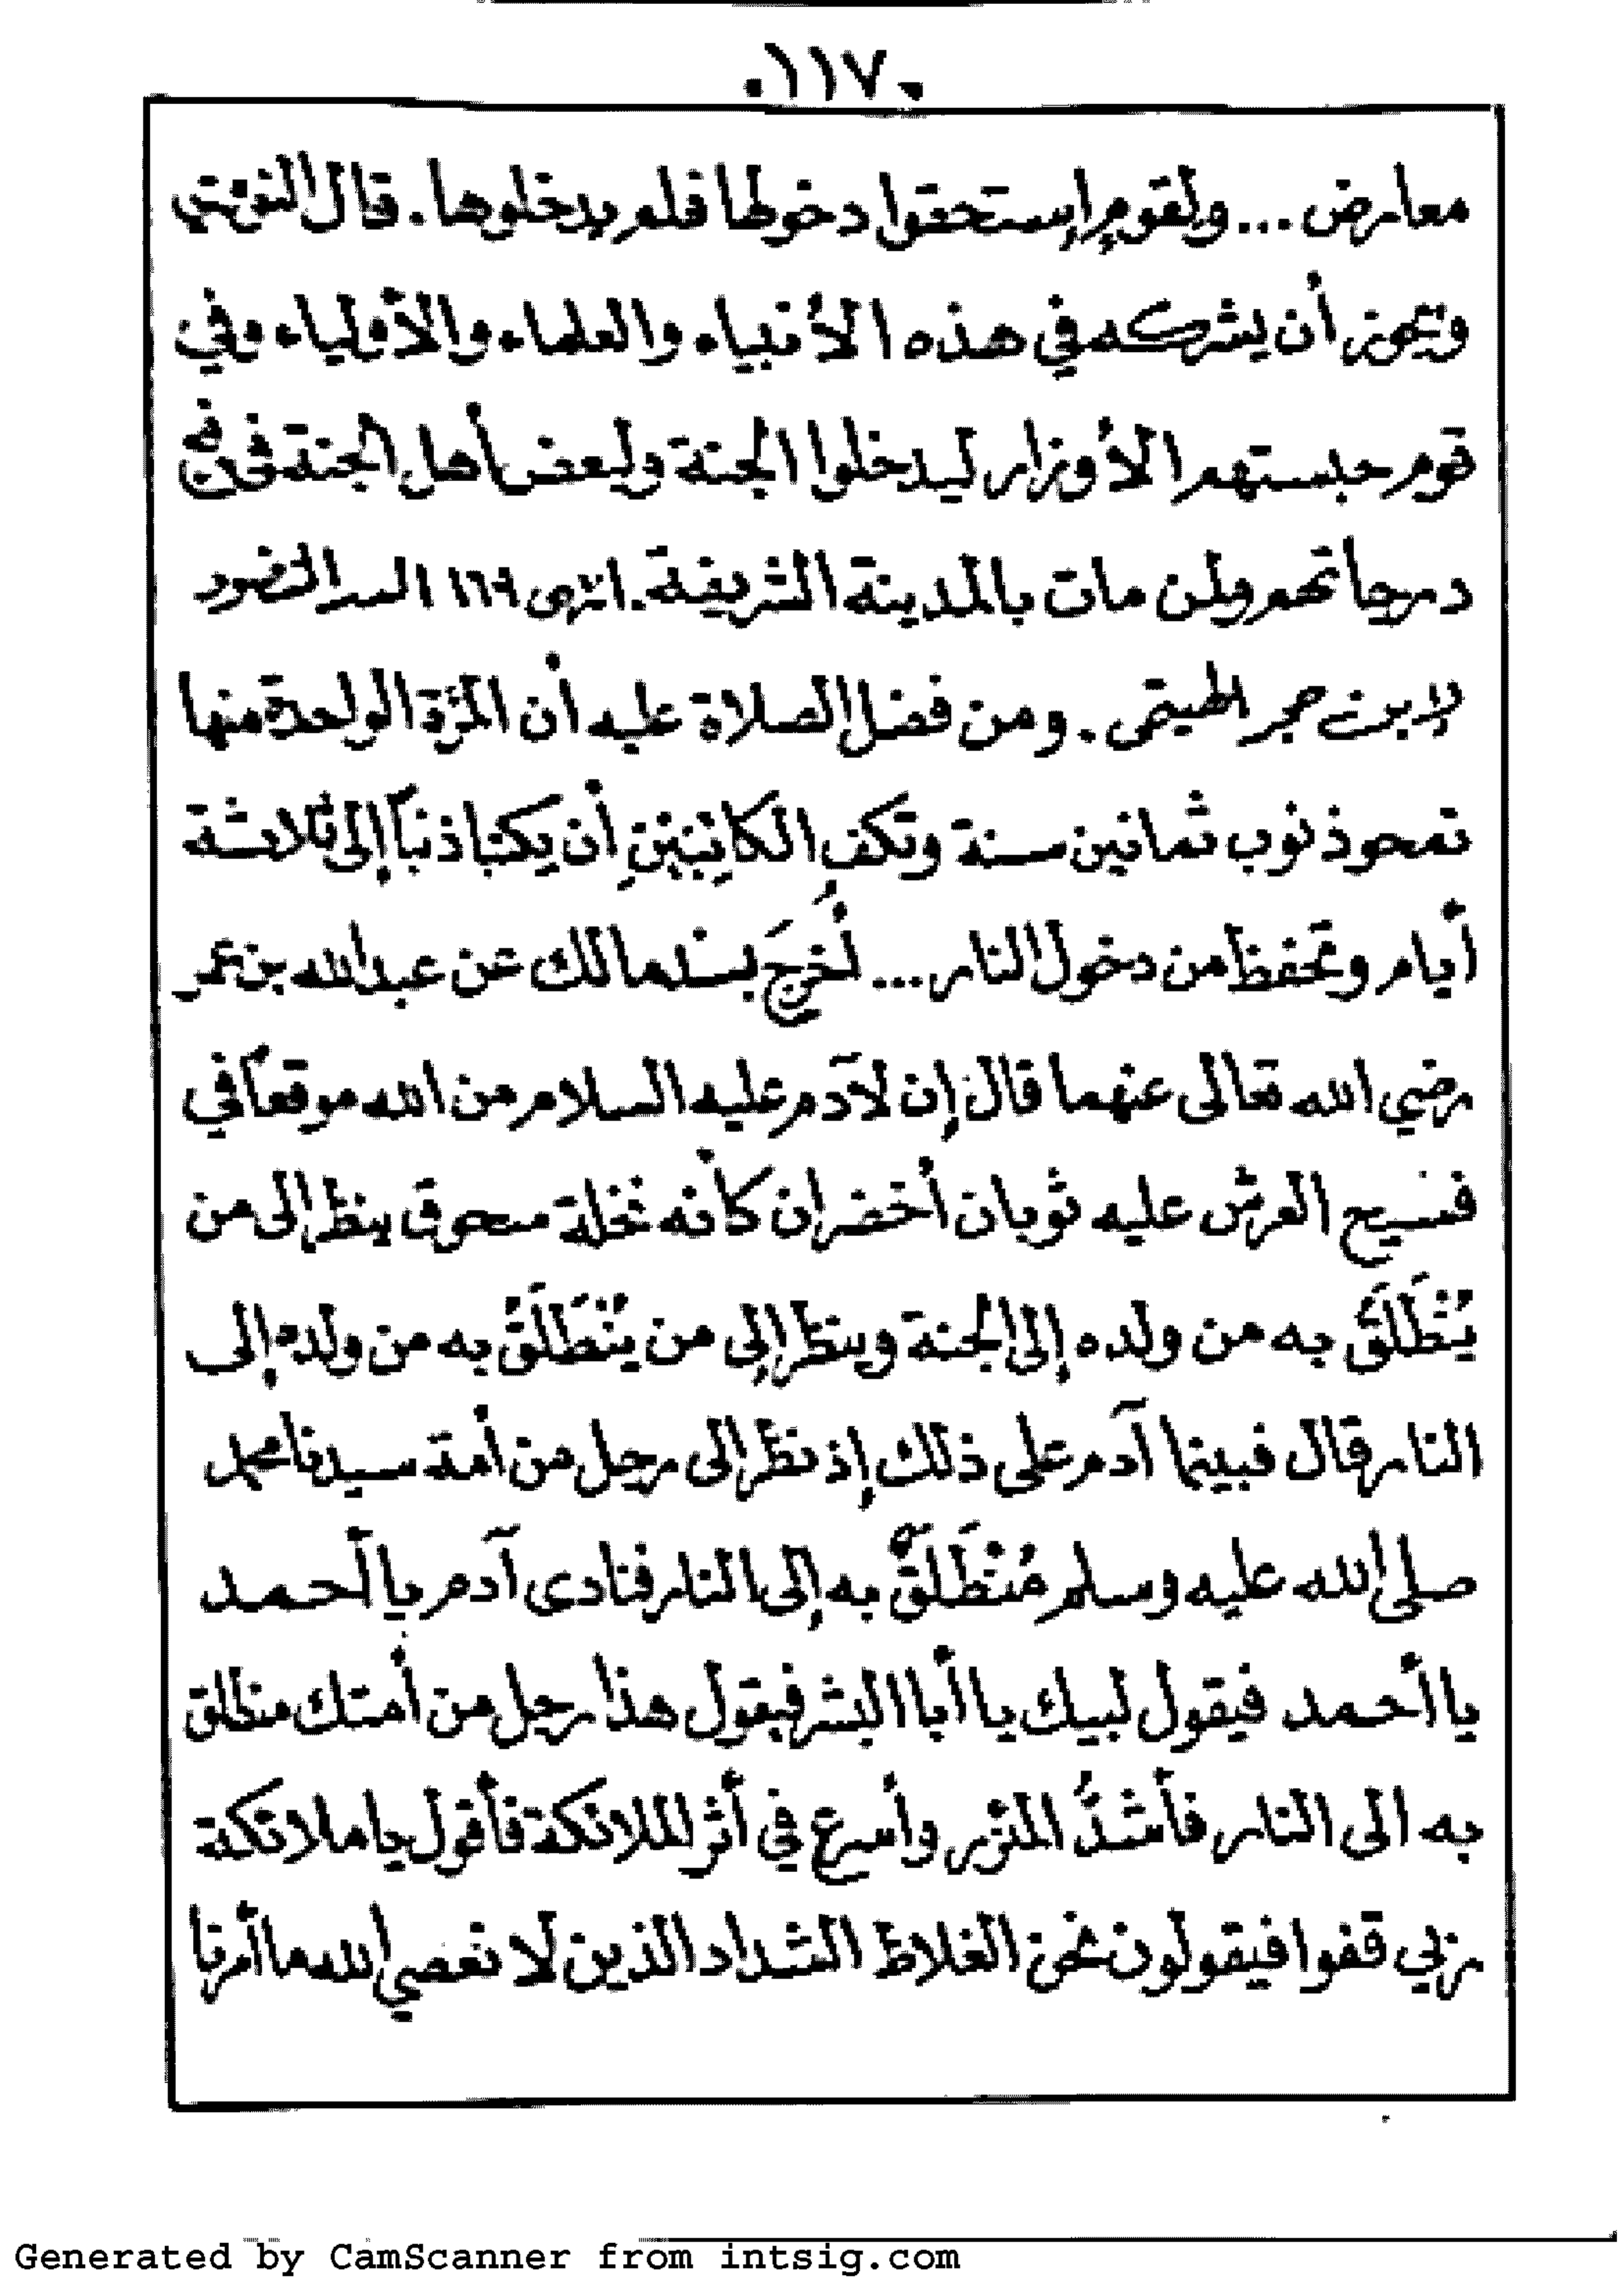 .١١٧.
معارض ... ولقوم إستحقوا دخولها فلم يدخلوها . قال النووي
ويجوز أن يشركه في هذه الأنبياء والعلماء والأولياء وفي
قوم حبستهم الأوزار ليدخلوا الجنة ولبعض أهل الجنة في رفع
درجاتهم ولمن مات بالمدينة الشريفة . انتهى ١٦٩ الدر المنضود
لابن حجر الهيتمى . ومن فضل الصلاة عليه أن المرّة الواحدة منها
تمحو ذنوب ثمانين سنة وتكف الكاتِبَيْنِ أن يكتبا ذنباً إلى ثلاثة
أيام وتحفظ من دخول النار ... أَخرجَ بسند مالك عن عبد الله بن عمر
رضي الله تعالى عنهما قال إن لآدم عليه السلام من الله موقعاً في
فسيح العرش عليه ثوبان أخضران كأنه نخلة سحوق ينظر إلى من
يُنْطَلَقُ به من ولده إلى الجنة وينظر إلى من يُنْطَلَقُ به من ولده إلى
النار قال فبينما آدم على ذلك إذ نظر إلى رجل من أمة سيدنا محمد
صلى الله عليه وسلم مُنْطَلَقٌ به إلى النار فنادى آدم يا أحمد
يا أحمد فيقول لبيك يا أبا البشر فيقول هذا رجل من أمتك منطلق
به الى النار فأشدُّ المئزر وأسرع في أثر الملائكة فأقول يا ملائكة
ربي قفوا فيقولون نحن الغلاظ الشداد الذين لا نعصي الله ما أمرنا
Generated by CamScanner from intsig.com